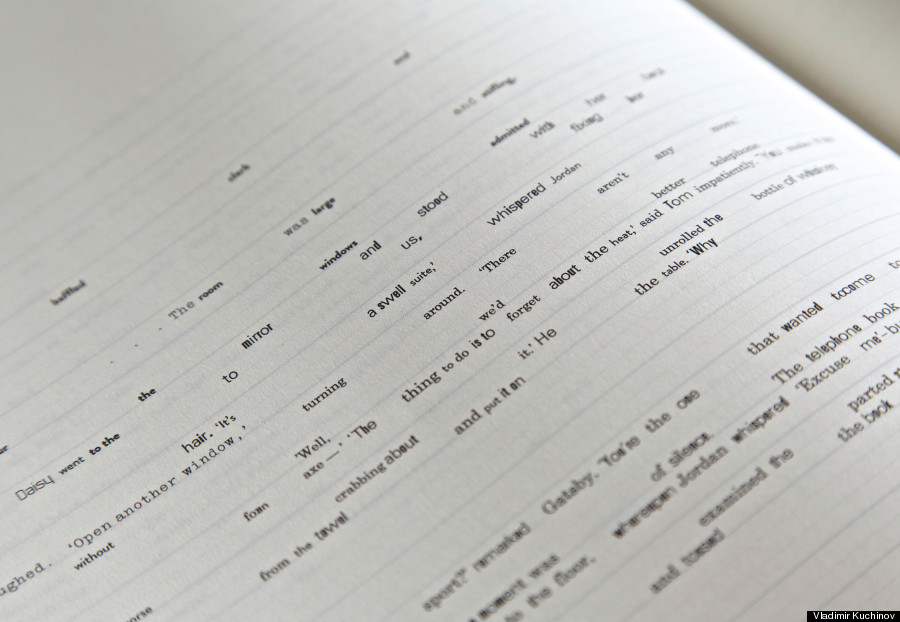 baffled clerk and
. . . The room was large and stifling,
the windows admitted
Daisy went to the mirror and stood with her back
to us, fixing her
hair. 'It's a swell suite,' whispered Jordan
'Open another window,' turning around. 'There aren't any more.'
without 'Well, we'd better telephone
axe —' 'The thing to do is to forget about the heat,' said Tom impatiently. 'You make it
crabbing about it.' He unrolled the bottle of whiskey
from the towel and put it on the table. 'Why
sport?' remarked Gatsby. 'You're the one that wanted to come to
moment was of silence. The telephone book
to the floor, whereupon Jordan whispered 'Excuse me'
examined the parted
and tossed the book